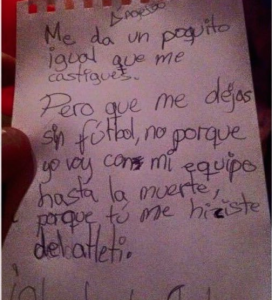 Me da un poquito
igual que me
castigues.
Pero que me dejas
sin fútbol, no porque
yo voy con mi equipo
hasta la muerte,
porque tú me hiciste
del atleti.